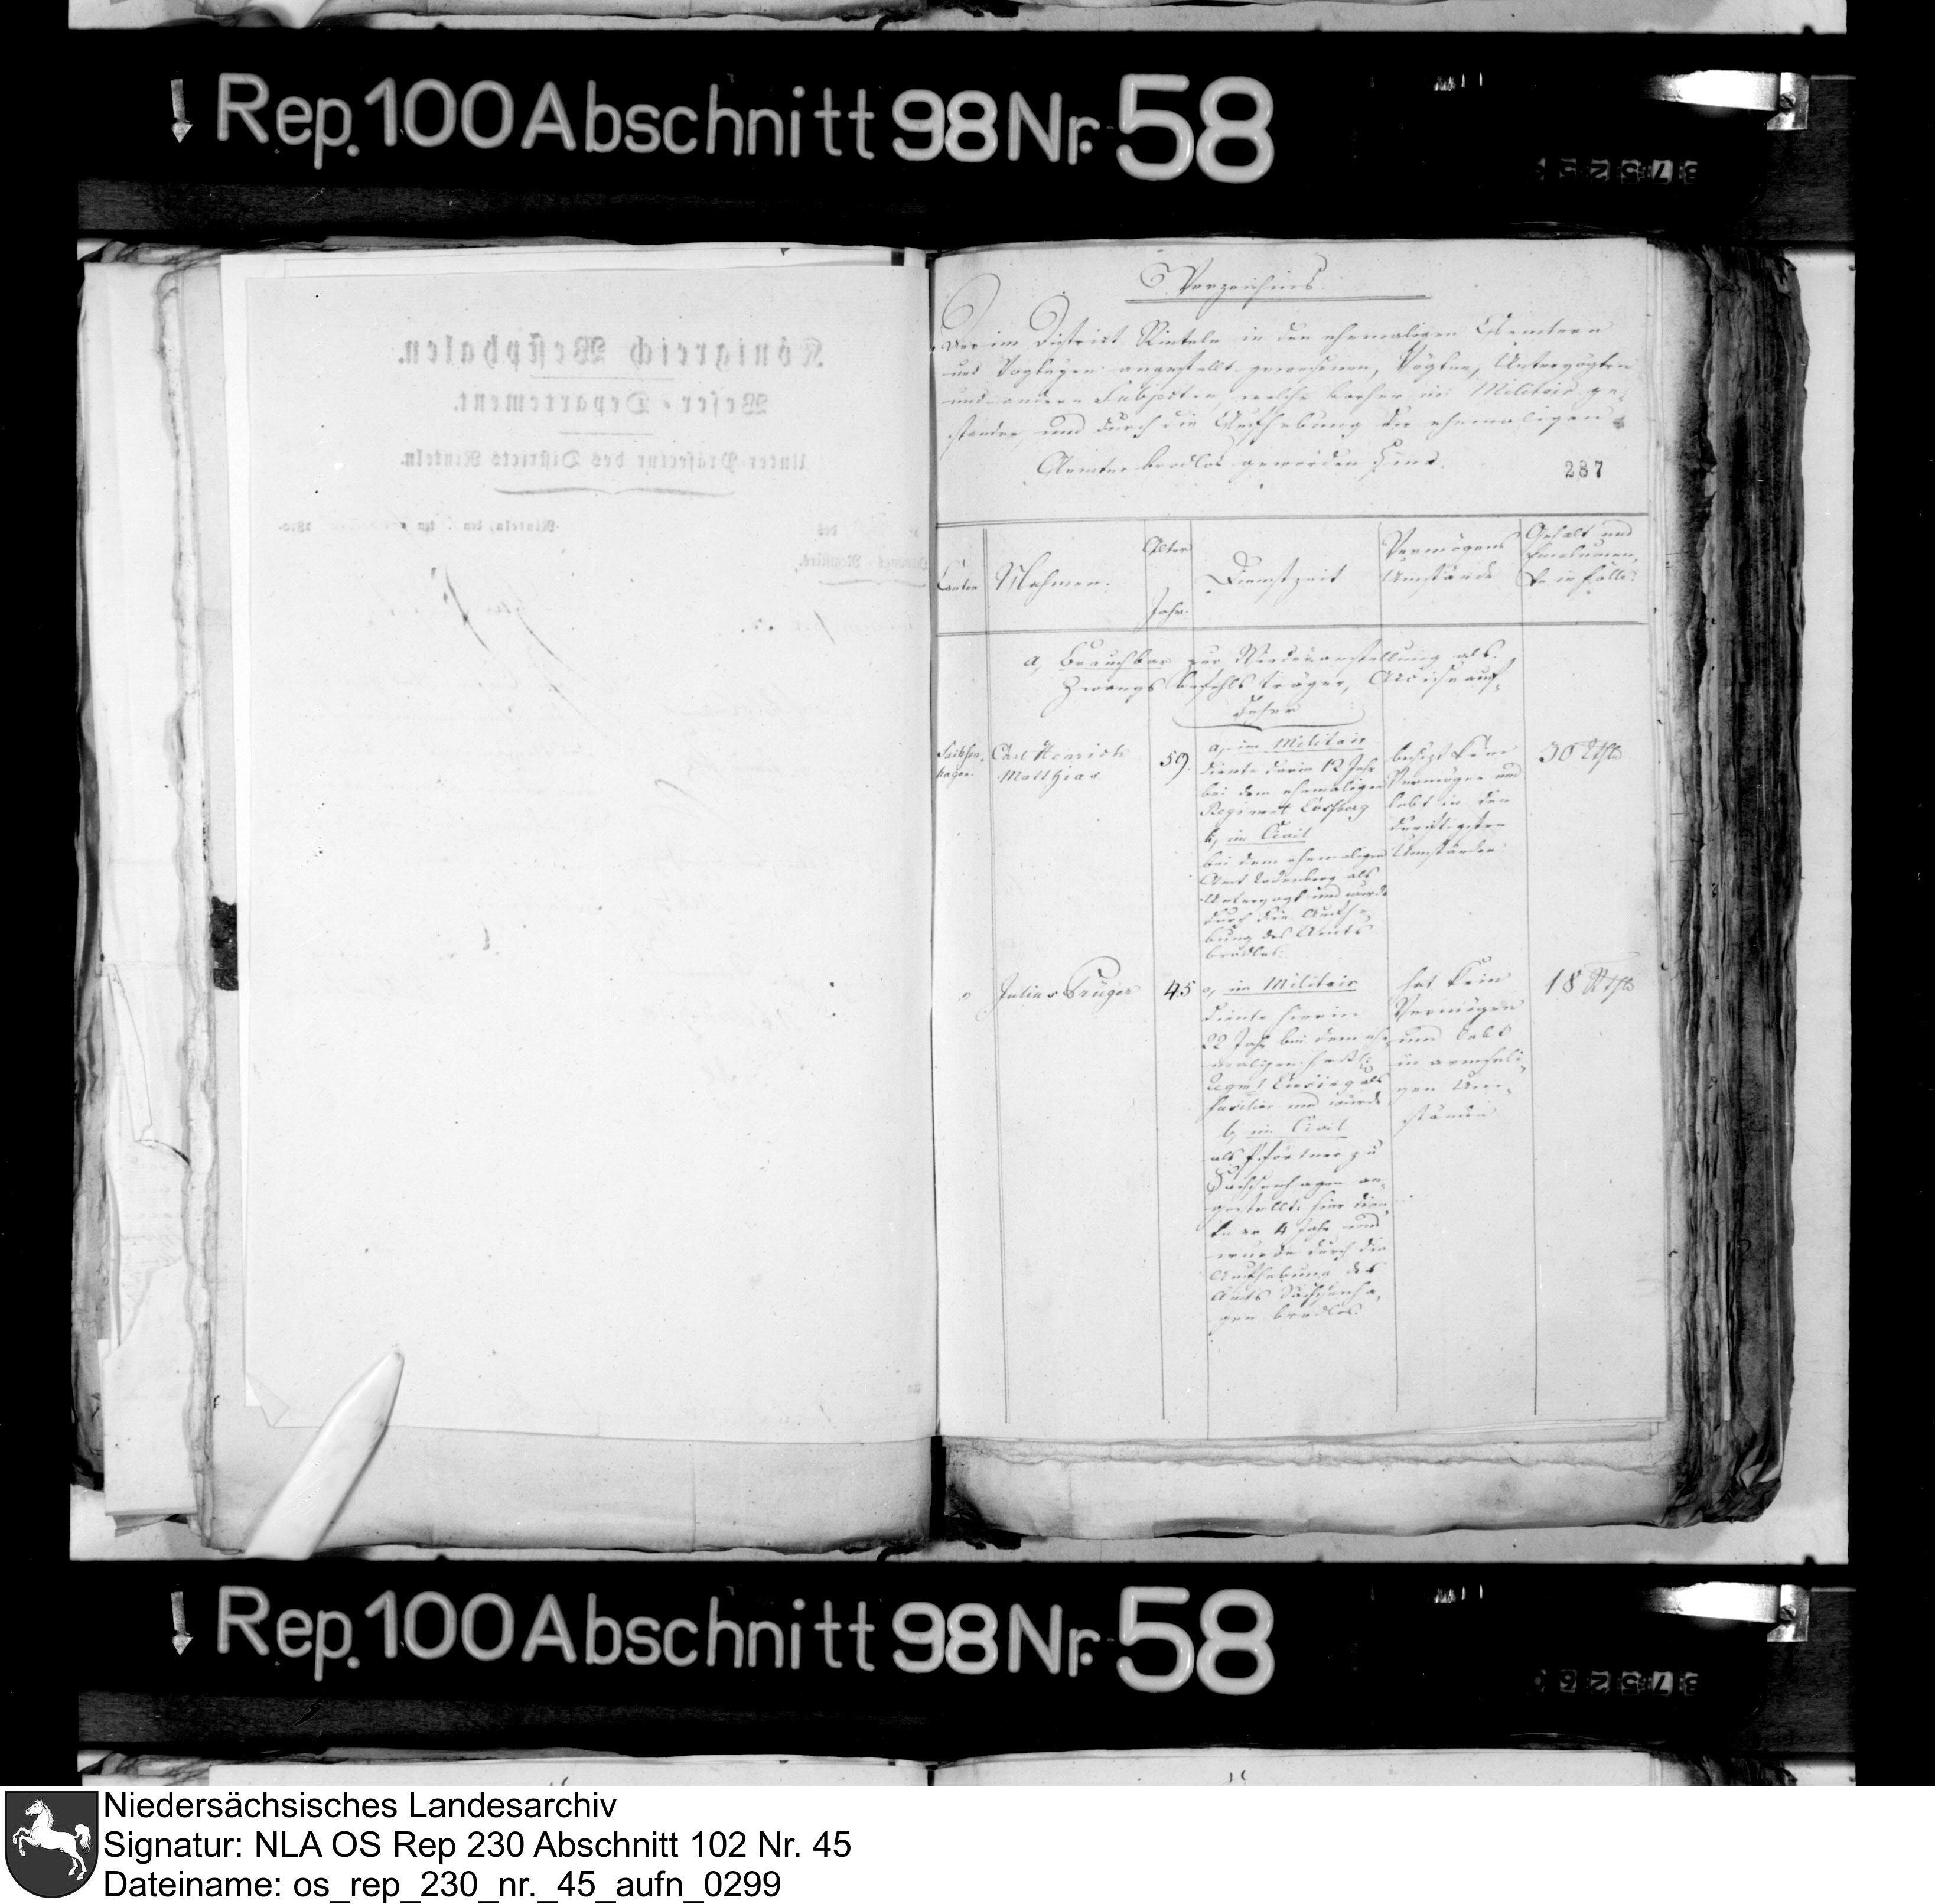 Rep. 100 Abschnitt 98 Nr. 58
Königreich Westphalen.
Weser-Departement.
Unter-Präfectur des Districts Rinteln.
Rinteln, den ten 1810.
des
Verzeichnis
Der im District Rinteln in den ehemaligen Aemtern
und Vogteyen angestellt gewesenen, Vögten, Untervögten
und andern Subjecten, welche vorher im Militair ge-
standen, und durch die Aufhebung der ehemaligen
Aemter brodlos geworden sind.
287
Canton
Nahmen.
Alter
Jahr.
Dienstzeit
Vermögens
Umstände
Gehalt und
Emolumen-
te in Fälle.
a, Brauchbar zur Wiederanstellung als
Zwangsbefehlsträger, Acciseauf-
seher
Sachsen-
hagen.
Carl Henrich
Matthias.
59.
a, im Militair
diente darin 12 Jahr
bei dem ehemaligen
Regiment Lossberg
b, im Civil
bei dem ehemaligen
Amt Rodenberg als
Untervogt und wurde
durch die Aufhe-
bung des Amts
brodlos.
besitzt kein
Vermögen und
lebt in den
dürftigsten
Umständen.
30 Rthlr
"
Julius Krüger
45
a, im Militair
diente hierin
22 Jahr bei dem ehe-
maligen
Regmt als
Fusilier und wurde
b, im Civil
als Pförtner zu
Sachsenhagen an-
gestellt. hier dien-
te er 4 Jahr und
wurde durch die
Aufhebung des
Amts Sachsenha-
gen brodlos.
hat kein
Vermögen
und lebt
in armseli-
gen Um-
ständen
18 Rthlr
Rep. 100 Abschnitt 98 Nr. 58
Niedersächsisches Landesarchiv
Signatur: NLA OS Rep 230 Abschnitt 102 Nr. 45
Dateiname: os_rep_230_nr._45_aufn_0299